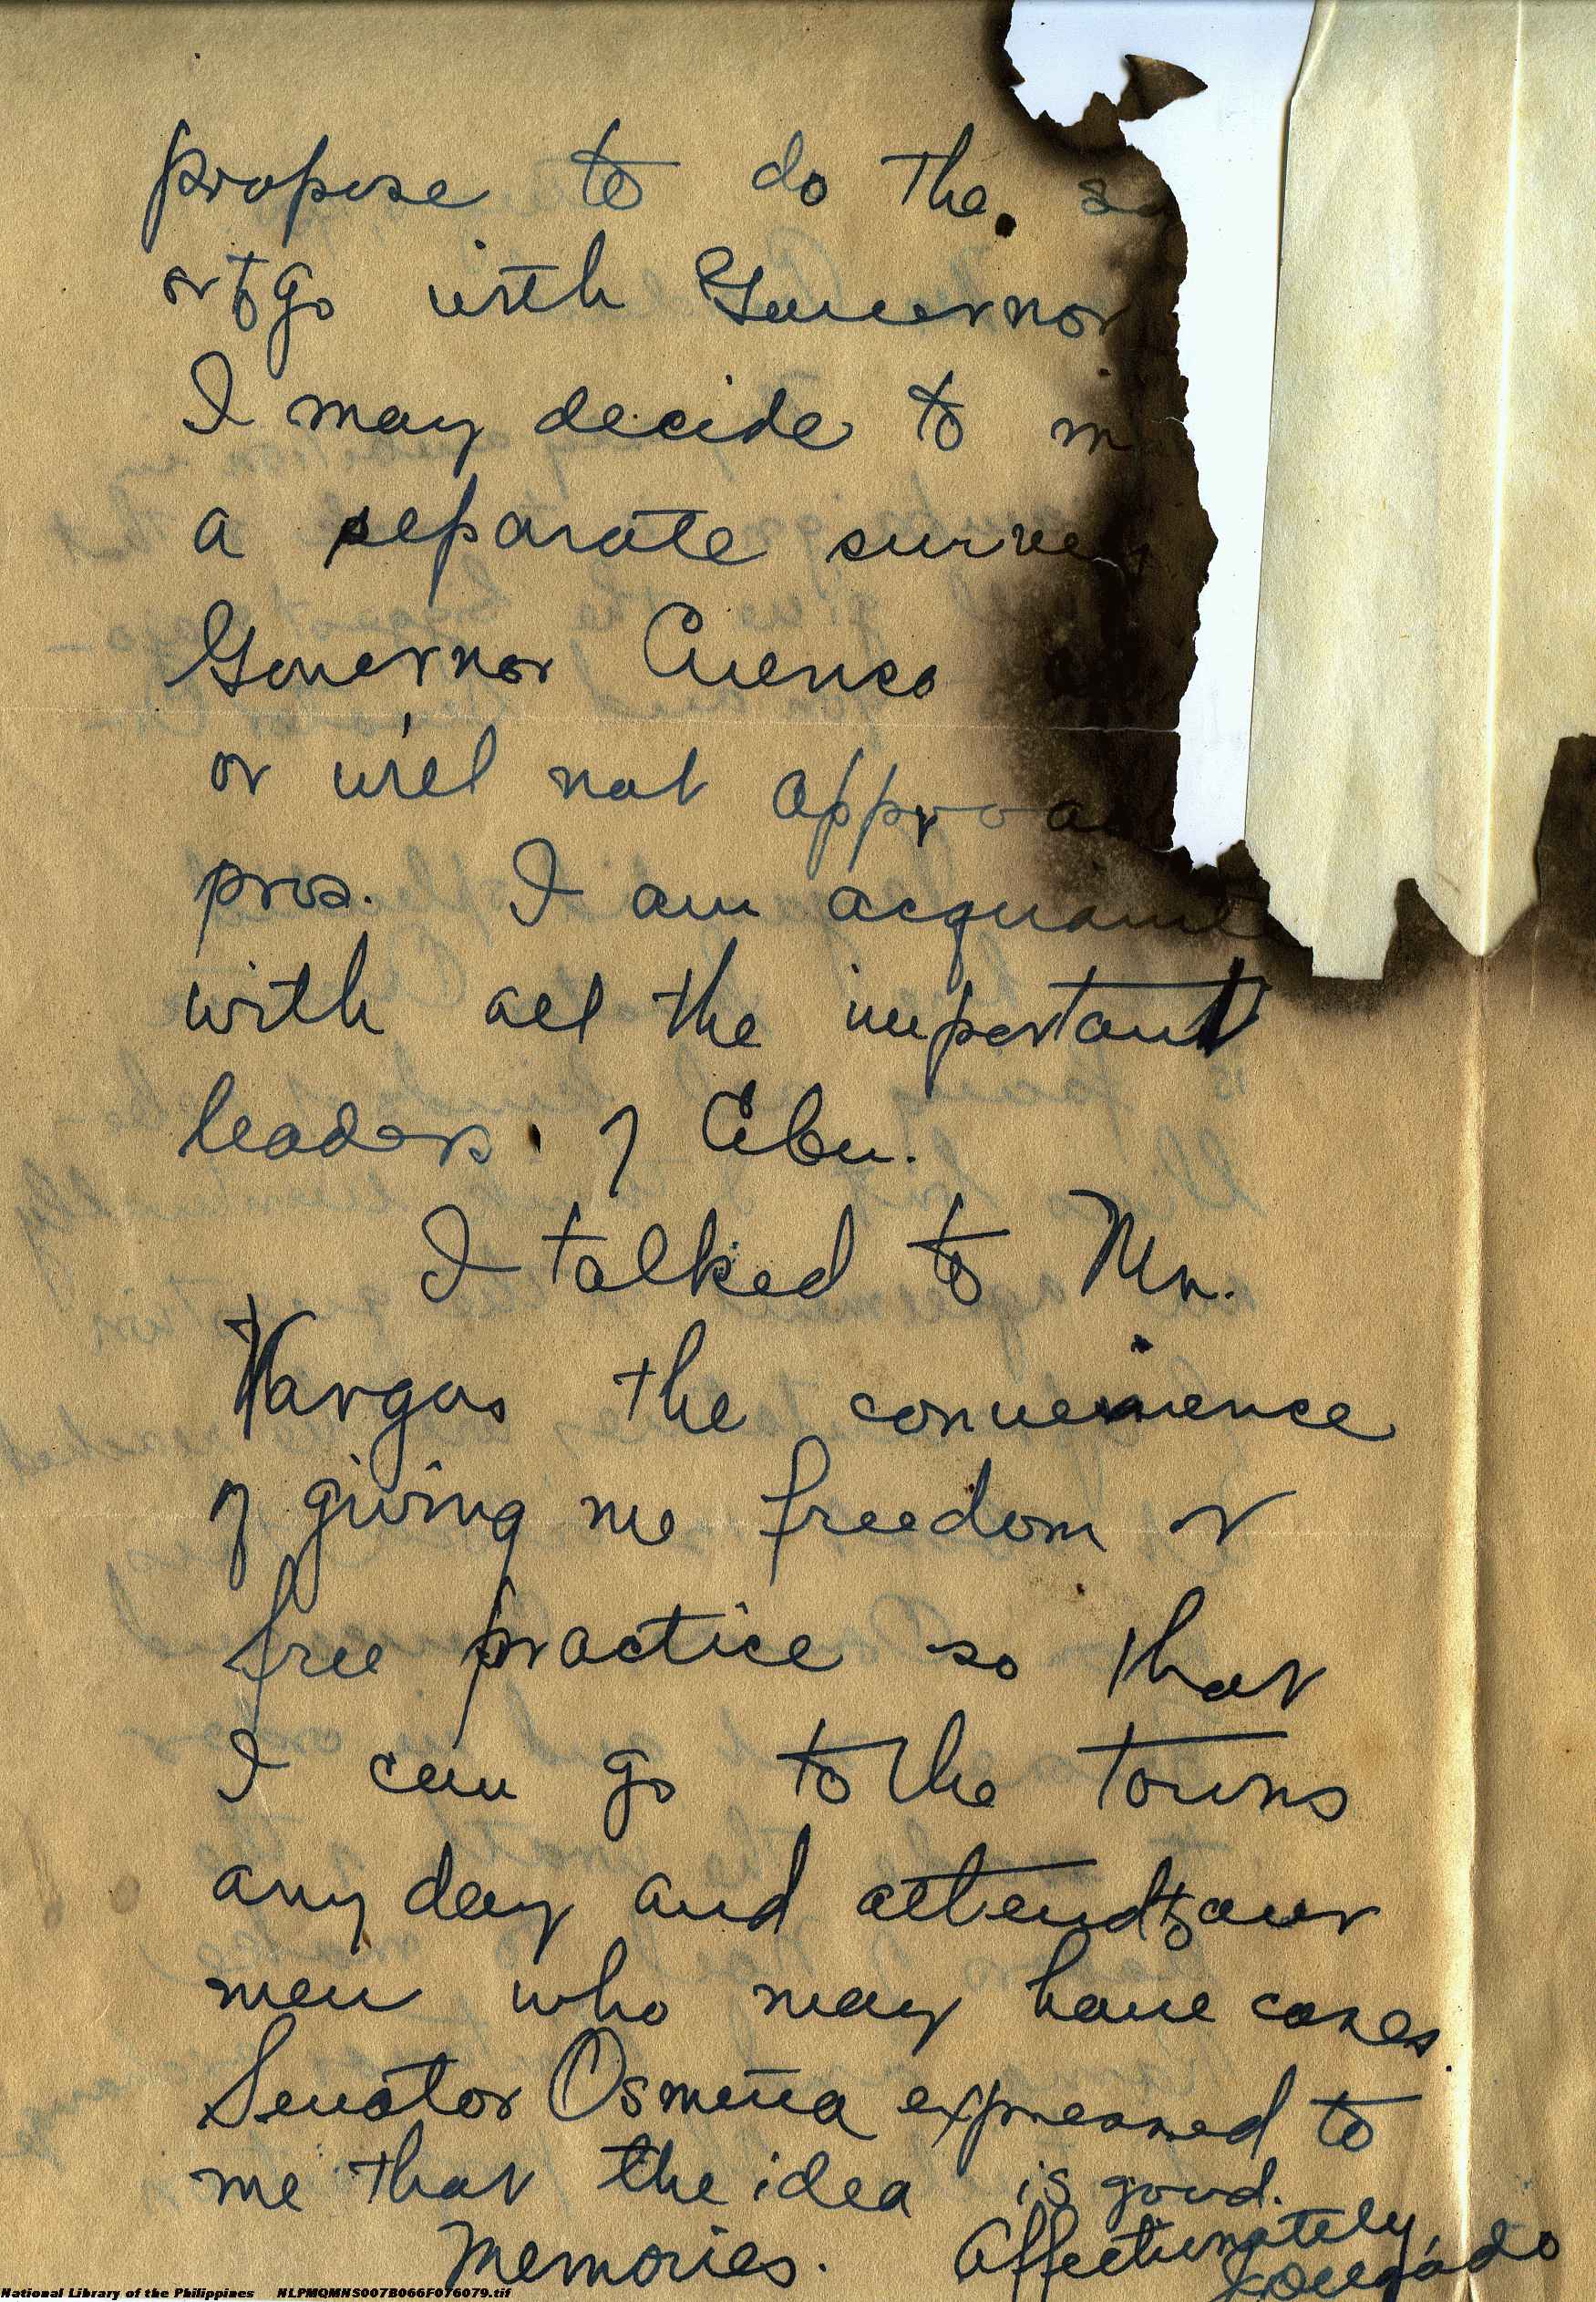 propose to do the sa
or to go with Governor
I may decide to m
a separate survey
Governor Cuenco
or will not approa
pros. I am acquainte
with all the important
leaders of Cebu.
I talked to Mr.
Vargas the convenience
of giving me freedom or
free practice so that
I can go to the towns
any day and attend to our
men who may have cases.
Senator Osmeña expressed to
me that the idea is good.
Memories. Affectionately,
Delgado
National Library of the Philippines NLPMQMNS007B066F076079.tif